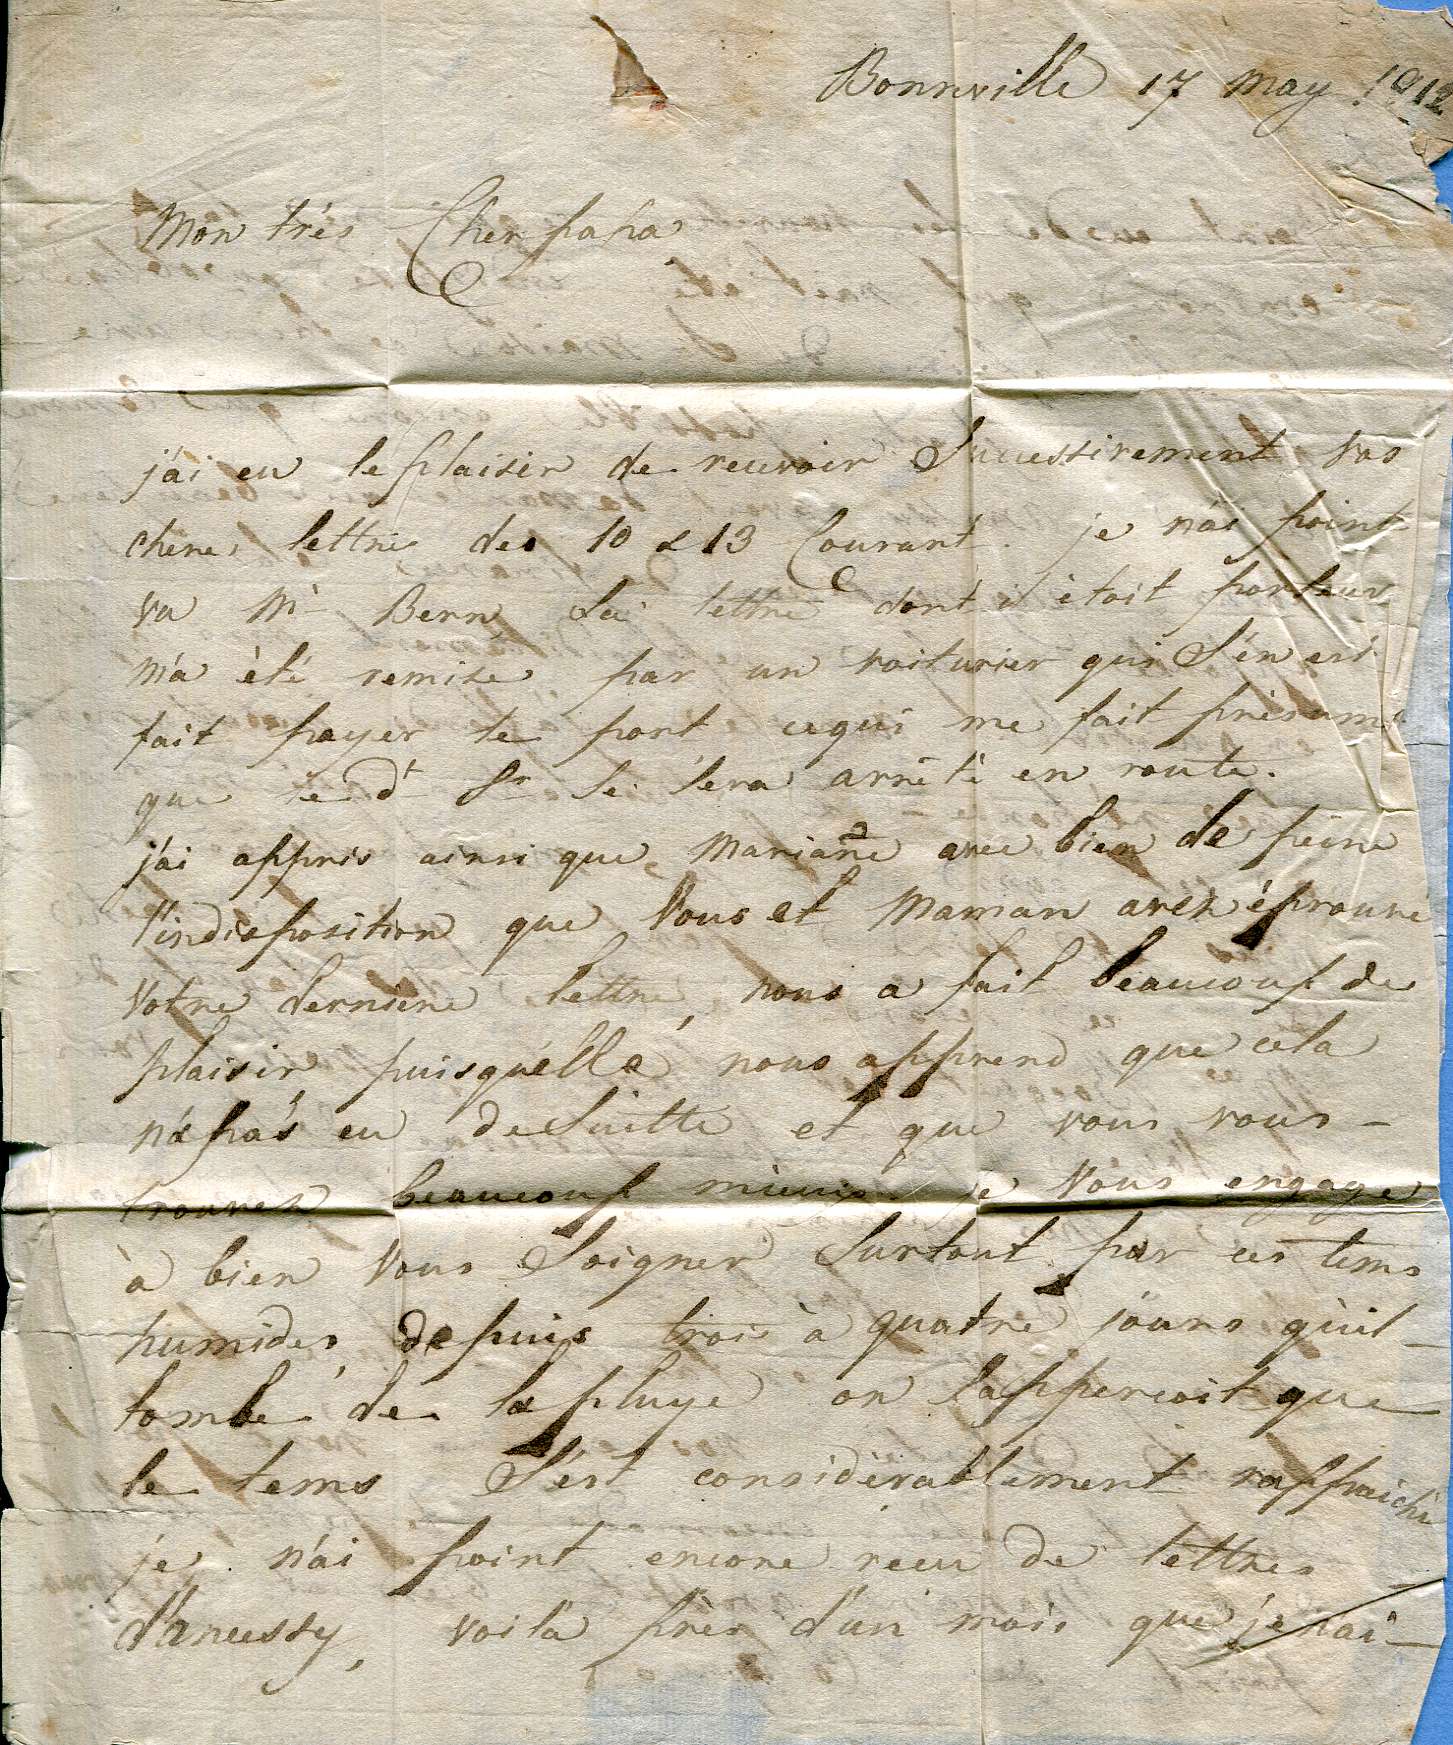 Bonneville 17 may 1812
Mon très Cher papa
j'ai eu le plaisir de recevoir Successivement vos
cheres lettres des 10 & 13 Courant. je n'ai point
vu Mr Bern, La lettre dont il ètoit porteur
m'a èté remise par un voiturier qui S'en est
fait payer le port cequi me fait présumer
que le dt Sr Se Sera arrêtè en route.
j'ai appris ainsi que Marianne avec bien de peine
l'indisposition que Vous et Maman avez éprouvé
Votre derniere lettre, nous a fait beaucoup de
plaisir puisqu'elle nous apprend que cela
n'a pas eu de Suitte et que vous vous -
trouvez beaucoup mieux. je Vous engage
à bien Vous Soigner Surtout par ces tems
humides, depuis trois à quatre jours qu'il -
tombe de la pluye on S'appercoit que
le tems S'est considérablement raffraichi
je n'ai point encore recu de lettres
d'anneссy, voila près d'un mois que je n'ai -